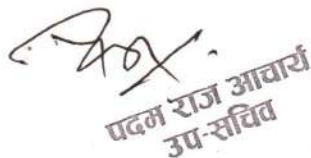 पदम राज आचार्य
उप-सचिव